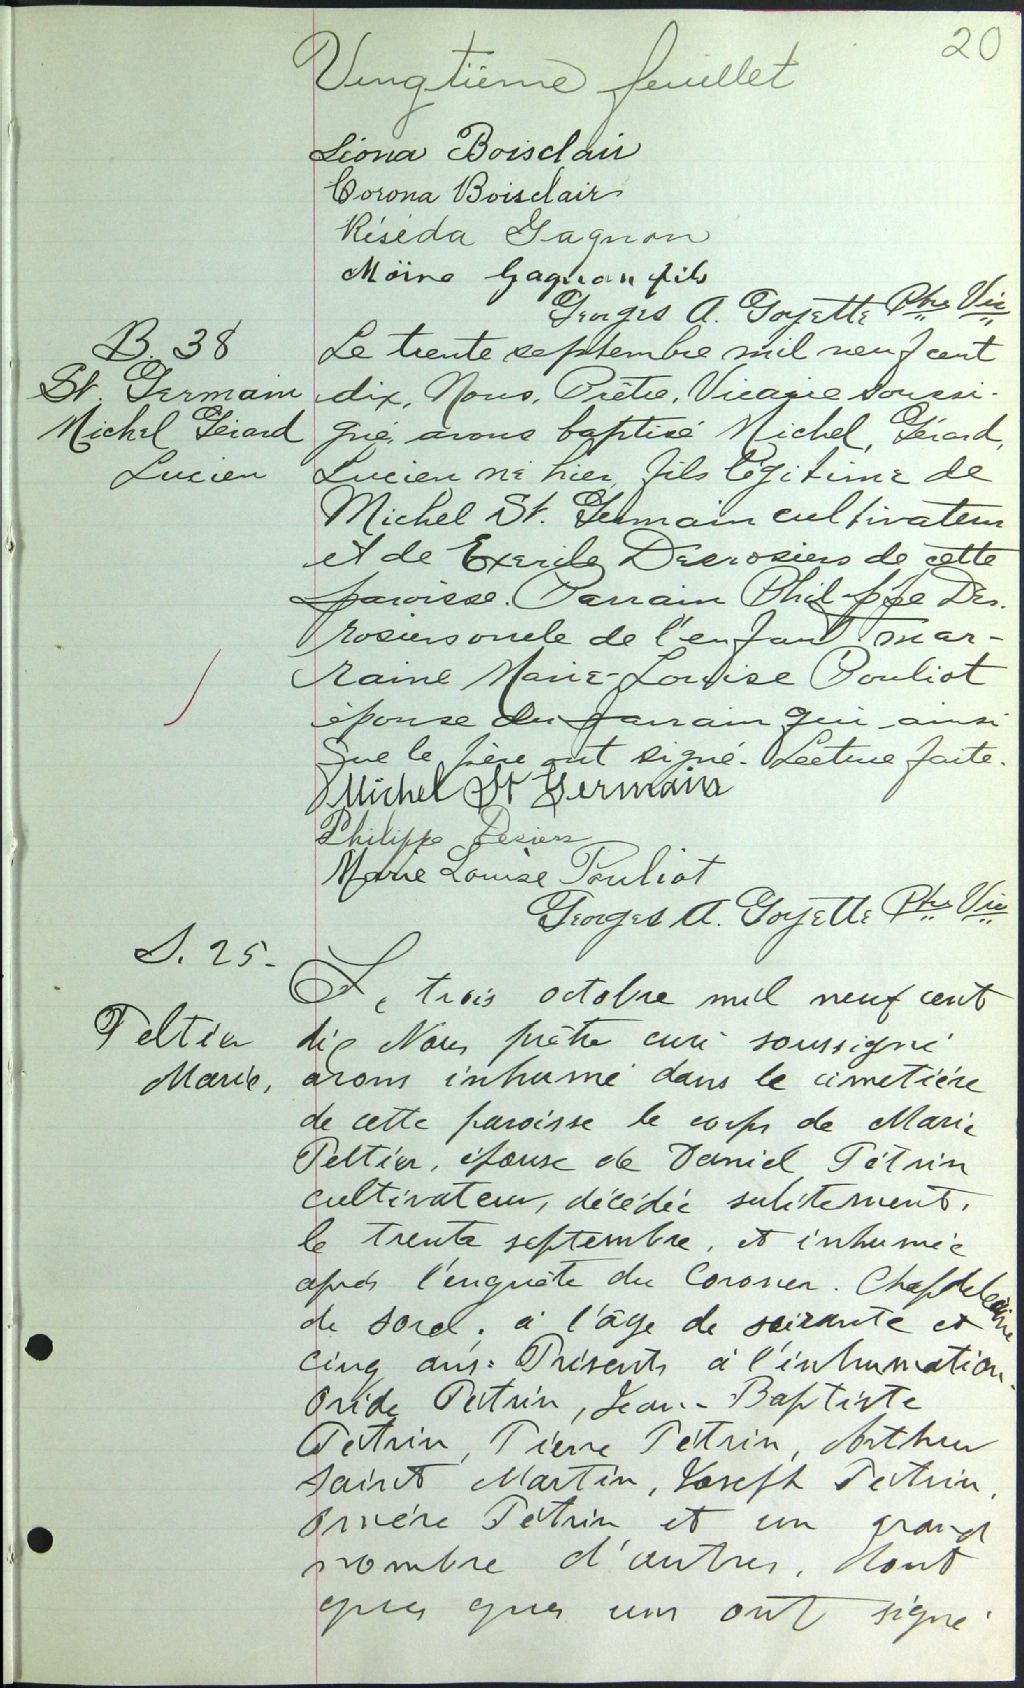 20
Vingtième feuillet
Liona Boisclair
Corona Boisclair
Réséda Gagnon
Moïne Gagnon fils
Georges A. Goyette Ptre Vic
B. 38
St. Germain
Michel Gérard
Lucien
Le trente septembre mil neuf cent
dix, Nous, Prêtre, Vicaire soussi-
gné, avons baptisé Michel, Gérard,
Lucien né hier, fils légitime de
Michel St. Germain cultivateur
et de Exerile Desrosiers de cette
paroisse. Parrain Philippe Des-
rosiers oncle de l'enfant mar-
raine Marie-Louise Pouliot
épouse du parrain qui ainsi
que le père ont signé. Lecture faite.
Michel St Germain
Philippe
Marie Louise Pouliot
Georges A. Goyette Ptre Vic
S. 25-
Peltier
Marie,
Le trois octobre mil neuf cent
dix Nous prêtre curé soussigné
avons inhumé dans le cimetière
de cette paroisse le corps de Marie
Peltier, épouse de Daniel Pétrin
cultivateur, décédée subitement,
le trente septembre, et inhumée
après l'enquête du Coroner. Chapdelaine
de Sorel, à l'âge de soixante et
cinq ans: Présents à l'inhumation-
Ovide Pétrin, Jean-Baptiste
Pétrin, Pierre Pétrin, Arthur
Saint Martin, Joseph Pétrin,
Pétrin et un grand
nombre d'autres, dont
ques ques uns ont signé